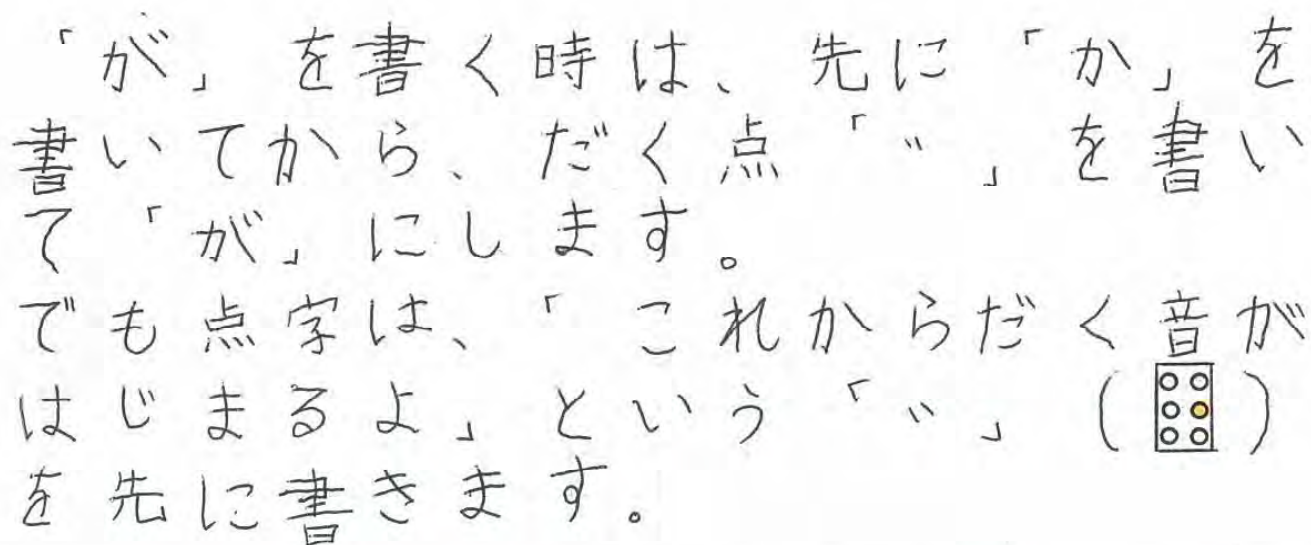 「が」を書く時は、先に「か」を
書いてから、だく点「゛」を書い
て「が」にします。
でも点字は、「これからだく音が
はじまるよ」という「゛」（ ）
を先に書きます。